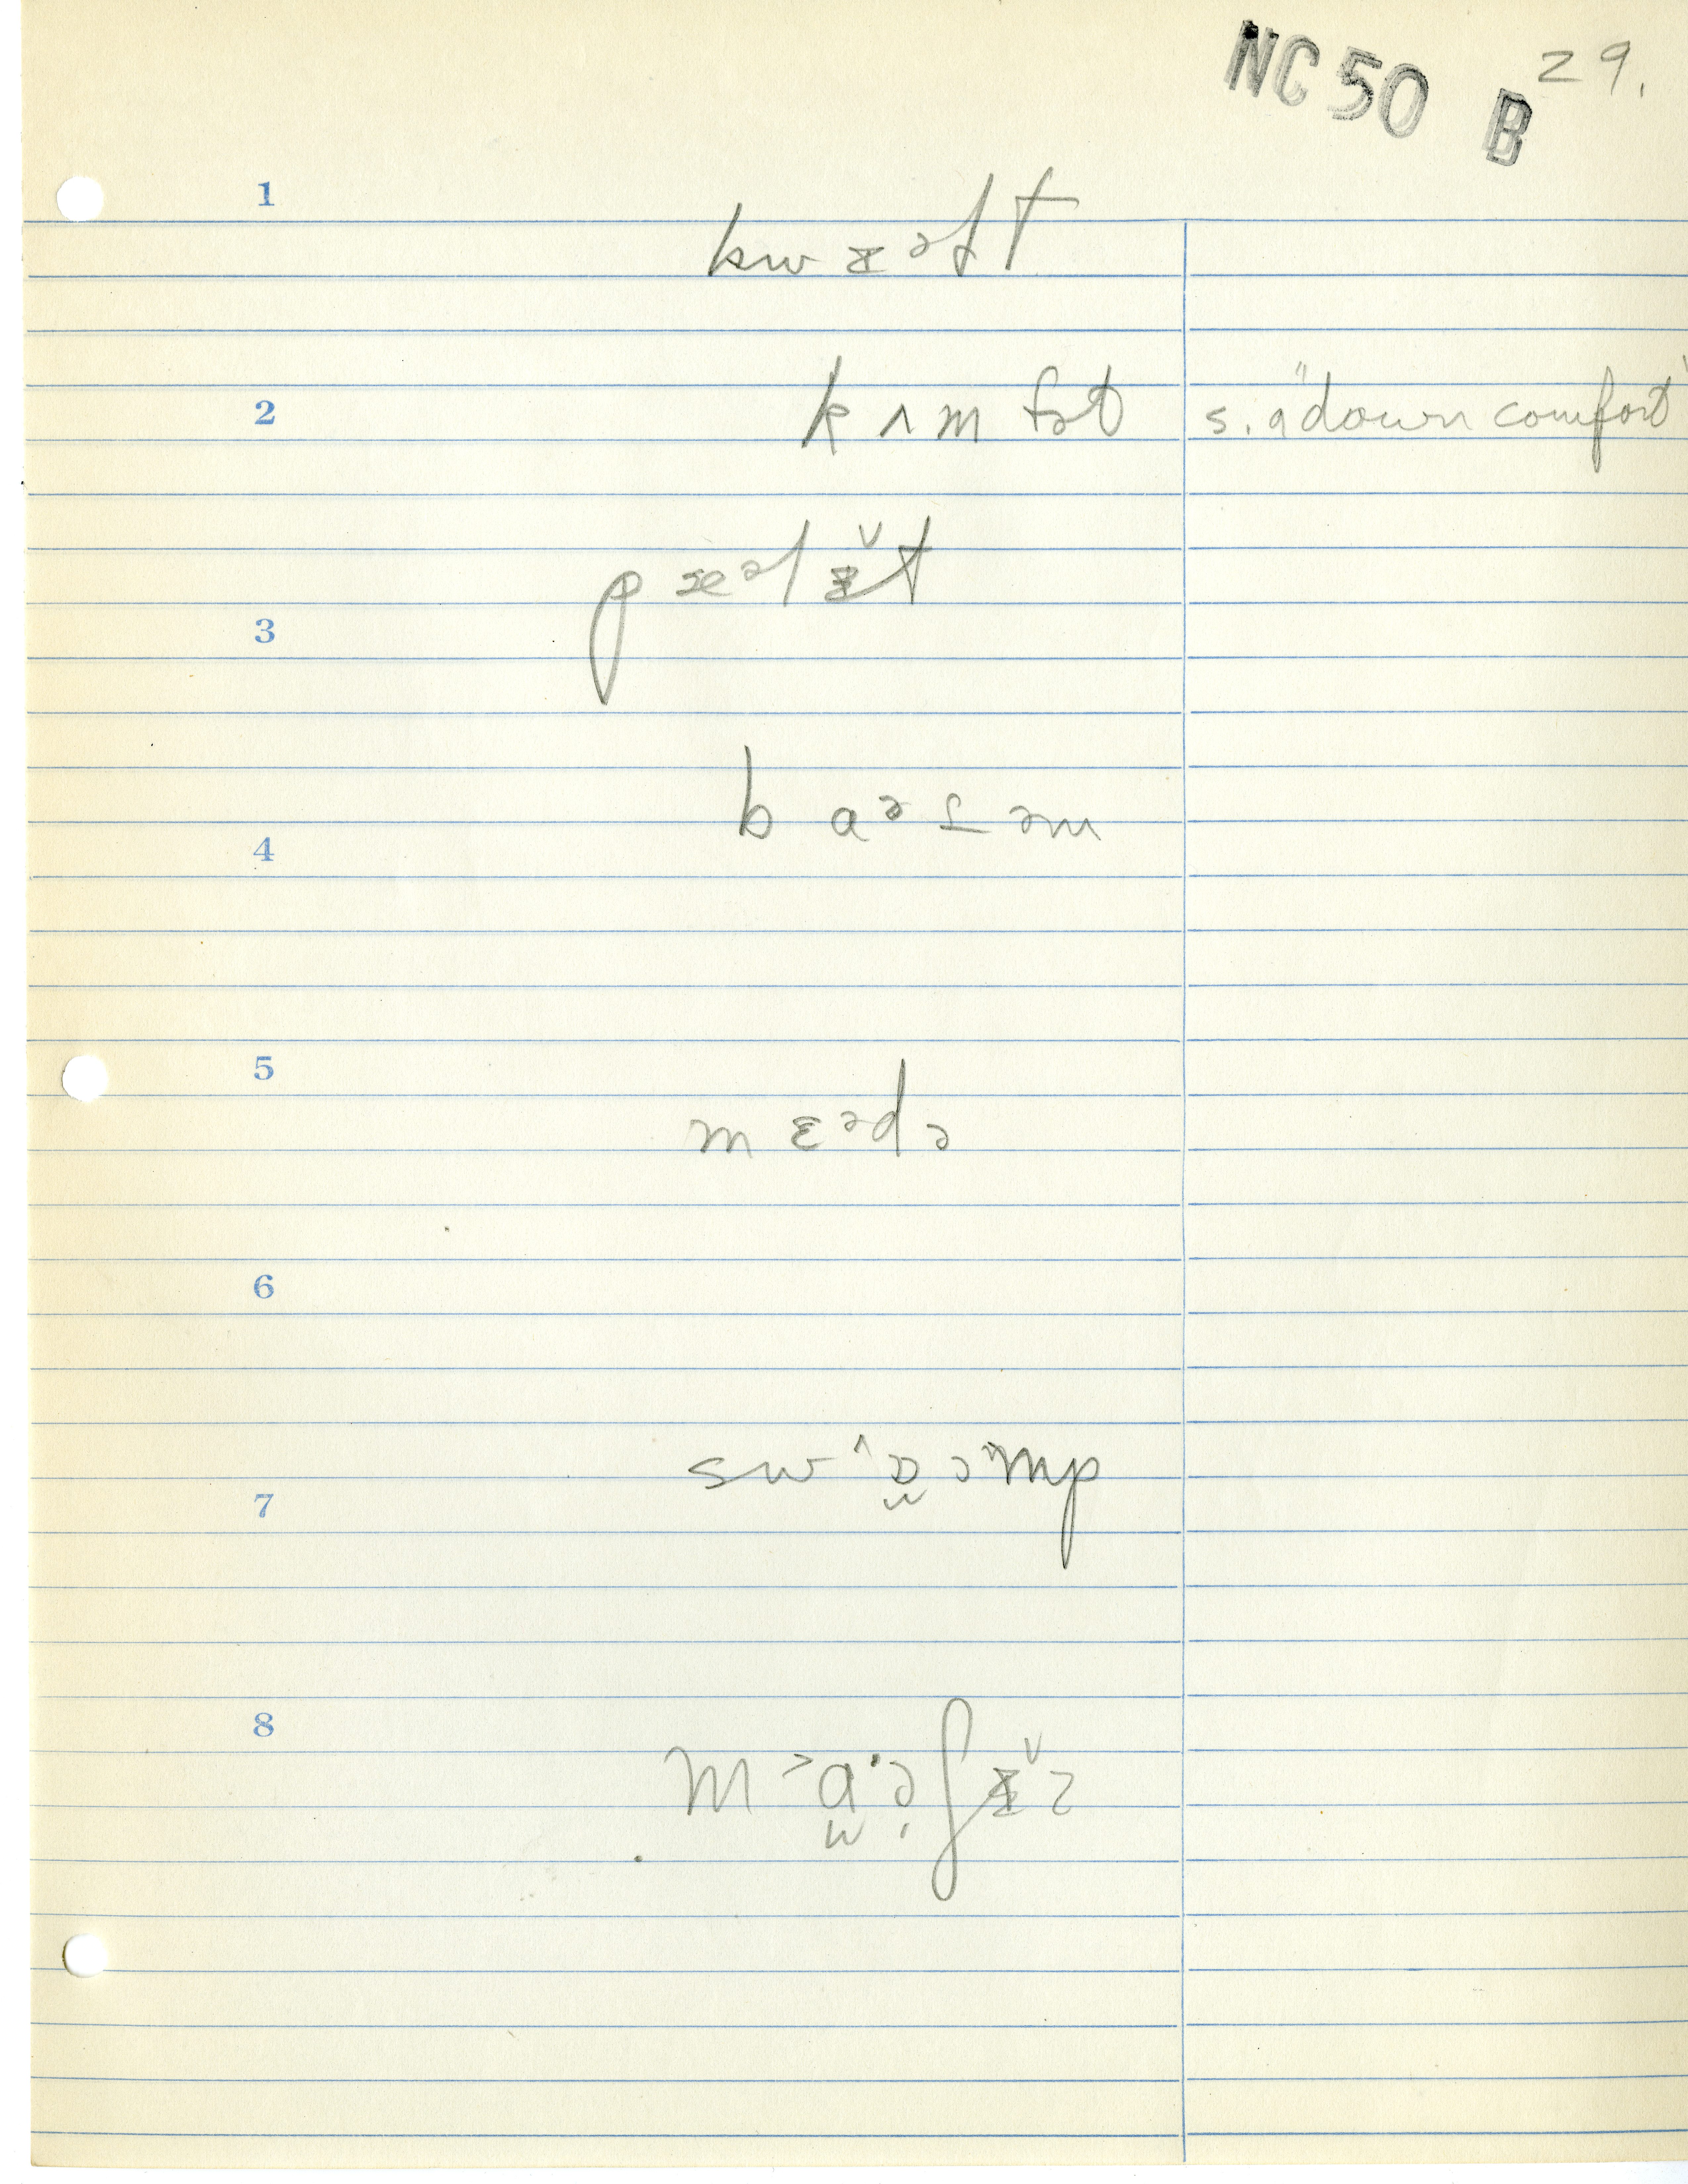 NC 50 B 29.
1
kwɪᵊɫt
2 kʌmfət s. a "down comfort"
pæᵊlɪ̌t
3
b aᵊʈəm
4
5
mɛᵊdə
6
sw^ɒ̯ɔ^mp
7
8
m˃a̯·ə̧ʃɪ̌z